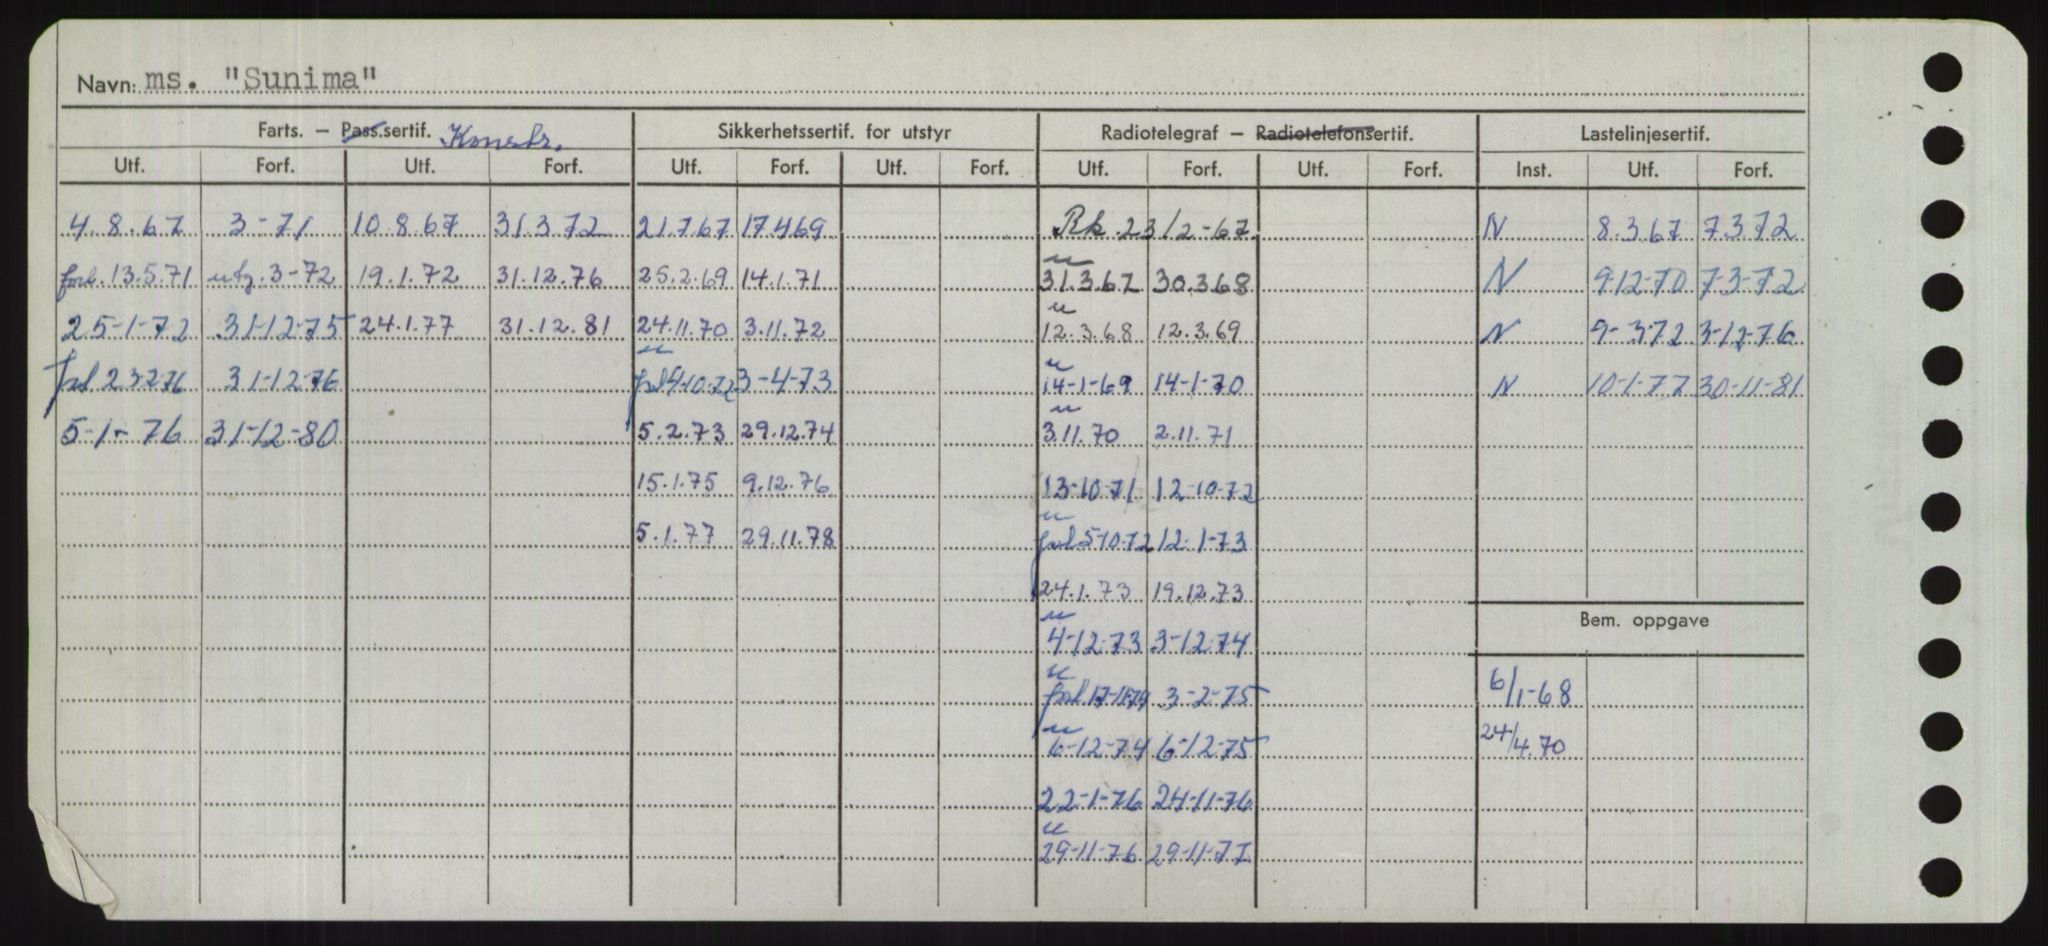 Navn: ms. "Sunima"
Farts. – Pass.sertif. Konstr. Sikkerhetssertif. for utstyr Radiotelegraf – Radiotelefonsertif. Lastelinjesertif.
Utf. Forf. Utf. Forf. Utf. Forf. Utf. Forf. Utf. Forf. Utf. Forf. Inst. Utf. Forf.
4.8.67 3-71 10.8.67 31.3.72 21.7.67 17.4.69 Rk. 23/2-67 N 8.3.67 7.3.72
forb. 13.5.71 utg. 3-72 19.1.72 31.12.76 25.2.69 14.1.71 u 31.3.67 30.3.68 N 9-12-70 7-3-72
25-1-72 31-12-75 24.1.77 31.12.81 24.11.70 3.11.72 u 12.3.68 12.3.69 N 9-3-72 3-12-76
forl 23-2-76 31-12-76 u forl 4-10-72 3-4-73 u 14-1-69 14-1-70 N 10-1-77 30-11-81
5-1-76 31-12-80 5.2.73 29.12.74 u 3.11.70 2.11.71
15.1.75 9.12.76 13-10-71 12-10-72
5.1.77 29.11.78 u forl 5-10-72 12-1-73
24.1.73 19.12.73
Bem. oppgave
u 4-12-73 3-12-74
u forl 17-11-74 3-2-75 6/1-68
u 6-12-74 6-12-75 24/4.70
22-1-76 24-11-76
u 29-11-76 29-11-77